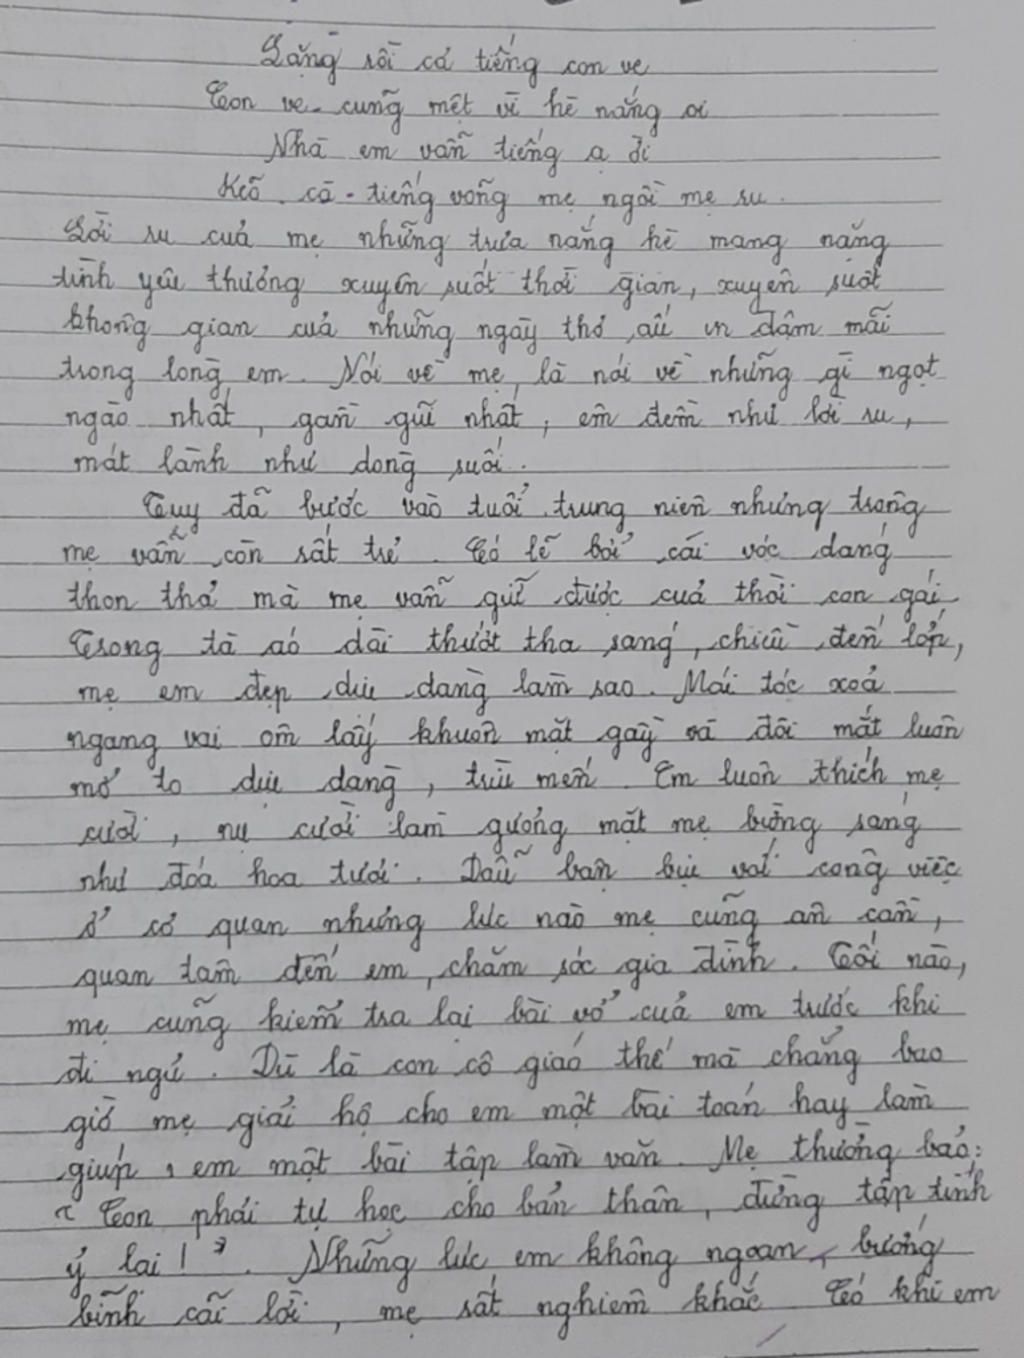 Lặng rồi cả tiếng con ve
Con ve cũng mệt vì hè nắng oi
Nhà em vẫn tiếng ạ ời
Kẽo cà tiếng võng mẹ ngồi mẹ ru.
Lời ru của mẹ những trưa nắng hè mang nặng
tình yêu thương xuyên suốt thời gian, xuyên suốt
không gian của những ngày thơ ấu in đậm mãi
trong lòng em. Nói về mẹ, là nói về những gì ngọt
ngào nhất, gần gũi nhất, êm đềm như lời ru,
mát lành như dòng suối.
Tuy đã bước vào tuổi trung niên nhưng trông
mẹ vẫn còn rất trẻ. Có lẽ bởi cái vóc dáng
thon thả mà mẹ vẫn giữ được của thời con gái.
Trong tà áo dài thướt tha sáng, chiều đến lớp,
mẹ em đẹp dịu dàng làm sao. Mái tóc xoã
ngang vai ôm lấy khuôn mặt gầy và đôi mắt luôn
mở to dịu dàng, trìu mến. Em luôn thích mẹ
cười, nụ cười làm gương mặt mẹ bừng sáng
như đoá hoa tươi. Dẫu bận bịu với công việc
ở cơ quan nhưng lúc nào mẹ cũng ân cần,
quan tâm đến em, chăm sóc gia đình. Tối nào,
mẹ cũng kiểm tra lại bài vở của em trước khi
đi ngủ. Dù là con cô giáo thế mà chẳng bao
giờ mẹ giải hộ cho em một bài toán hay làm
giúp em một bài tập làm văn. Mẹ thường bảo:
"Con phải tự học cho bản thân, đừng tập tính
ỷ lại!". Những lúc em không ngoan, bướng
bỉnh cãi lời, mẹ rất nghiêm khắc. Có khi em